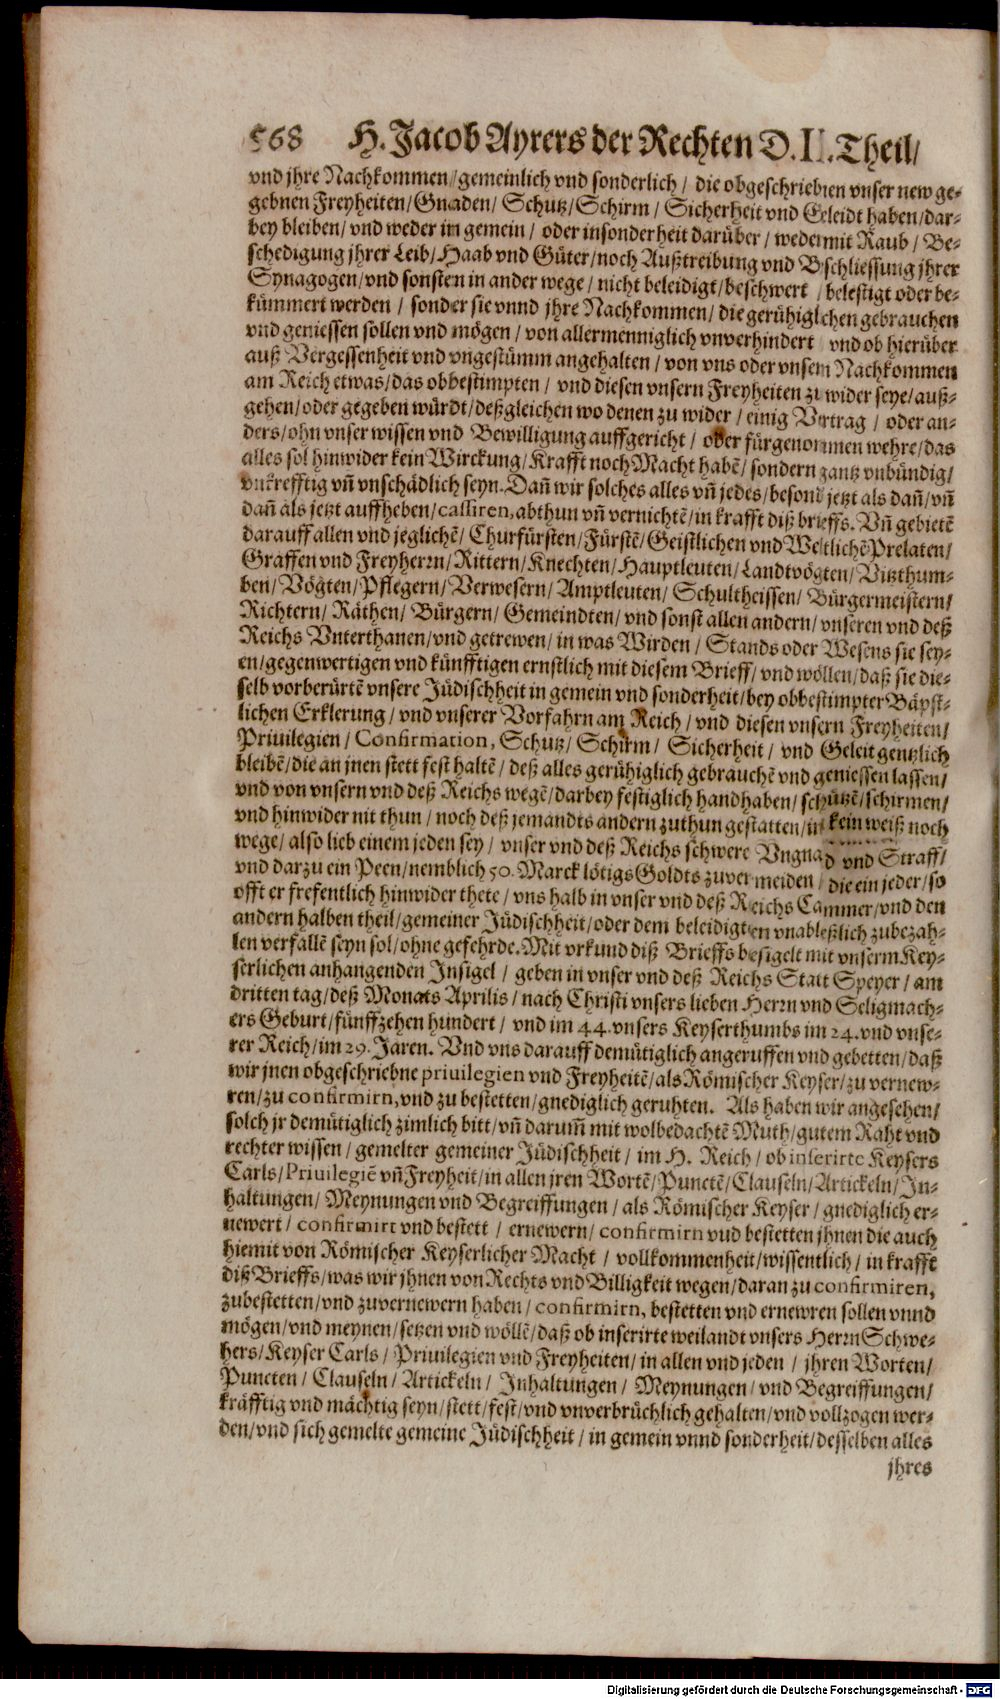 568 H. Jacob Ayrers der Rechten D. II. Theil/
vnd jhre Nachkommen/gemeinlich vnd sonderlich / die obgeschriebnen vnser new ge-
gebnen Freyheiten/Gnaden/ Schutz/Schirm / Sicherheit vnd Geleidt haben/dar-
bey bleiben/ vnd weder im gemein / oder insonderheit darüber / weder mit Raub / Be-
schedigung jhrer Leib/Haab vnd Güter/noch Außtreibung vnd Bschliessung jhrer
Synagogen/vnd sonsten in ander wege / nicht beleidigt/beschwert / belestigt oder be-
kümmert werden / sonder sie vnnd jhre Nachkommen/ die gerühiglichen gebrauchen
vnd geniessen sollen vnd mögen / von allermenniglich vnverhindert vnd ob hierüber
auß Vergessenheit vnd vngestümm angehalten / von vns oder vnsern Nachkommen
am Reich etwas/das obbestimpten / vnd diesen vnsern Freyheiten zu wider seye/auß-
gehen/oder gegeben würdt/deßgleichen wo denen zu wider / einig Vertrag / oder an-
ders/ohn vnser wissen vnd Bewilligung auffgericht / oder fürgenommen wehre/das
alles sol hinwider kein Wirckung/Krafft noch Macht habẽ/ sondern gantz vnbündig/
vnkrefftig vñ vnschädlich seyn. Dañ wir solches alles vñ jedes/besond jetzt als dañ/vñ
dañ als jetzt auffheben/cassiren,abthun vñ vernichtẽ/in krafft diß brieffs. Vñ gebietẽ
darauff allen vnd jeglichẽ/ Churfürsten/Fürstẽ/Geistlichen vnd Weltlichẽ Prelaten/
Graffen vnd Freyherrn/Rittern/Knechten/Hauptleuten/Landtvögten/Vitzthum-
ben/Vögten/Pflegern/Verwesern/Amptleuten/Schultheissen/Bürgermeistern/
Richtern/ Räthen/ Bürgern/ Gemeindten/ vnd sonst allen andern/ vnseren vnd deß
Reichs Vnterthanen/vnd getrewen/in was Wirden / Stands oder Wesens sie sey-
en/gegenwertigen vnd künfftigen ernstlich mit diesem Brieff/ vnd wöllen/daß sie die-
selb vorberürtẽ vnsere Jüdischheit in gemein vnd sonderheit/bey obbestimpter Bäpst-
lichen Erklerung/ vnd vnserer Vorfahrn am Reich / vnd diesen vnsern Freyheiten/
Priuilegien / Confirmation, Schutz/ Schirm / Sicherheit / vnd Geleit gentzlich
bleibẽ/die an jnen stett fest haltẽ/ deß alles gerühiglich gebrauchẽ vnd geniessen lassen/
vnd von vnsern vnd deß Reichs wegẽ/darbey festiglich handhaben/ schützẽ/schirmen/
vnd hinwider nit thun / noch deß jemandts andern zuthun gestatten/in kein weiß noch
wege/ also lieb einem jeden sey / vnser vnd deß Reichs schwere Vngnad vnd Straff/
vnd darzu ein Peen/nemblich 50. Marck lötigs Goldts zuvermeiden / die ein jeder/so
offt er frefentlich hinwider thete / vns halb in vnser vnd deß Reichs Cammer/vnd den
andern halben theil/gemeiner Jüdischheit/oder dem beleidigten vnableßlich zubezah-
len verfallẽ seyn sol/ohne gefehrde. Mit vrkund diß Brieffs besigelt mit vnserm Key-
serlichen anhangenden Insigel / geben in vnser vnd deß Reichs Statt Speyer / am
dritten tag/deß Monats Aprilis / nach Christi vnsers lieben Herrn vnd Seligmach-
ers Geburt/fünffzehen hundert / vnd im 44. vnsers Keyserthumbs im 24. vnd vnse-
rer Reich/im 29. Jaren. Vnd vns darauff demütiglich angeruffen vnd gebetten/daß
wir jnen obgeschriebne priuilegien vnd Freyheitẽ/als Römischer Keyser/zu vernew-
ren/zu confirmirn,vnd zu bestetten/gnediglich geruhten. Als haben wir angesehen/
solch jr demütiglich zimlich bitt/vñ darum̃ mit wolbedachtẽ Muth/gutem Raht vnd
rechter wissen / gemelter gemeiner Jüdischheit / im H. Reich / ob inserirte Keysers
Carls/Priuilegiẽ vñ Freyheit/in allen jren Wortẽ/Punctẽ/Clauseln/Artickeln/In-
haltungen/ Meynungen vnd Begreiffungen / als Römischer Keyser / gnediglich er-
newert / confirmirt vnd bestett / ernewern/ confirmirn vnd bestetten jhnen die auch
hiemit von Römischer Keyserlicher Macht / vollkommenheit/wissentlich / in krafft
diß Brieffs/was wir jhnen von Rechts vnd Billigkeit wegen/daran zu confirmiren,
zubestetten/vnd zuvernewern haben/ confirmirn, bestetten vnd ernewren sollen vnnd
mögen/vnd meynen/setzen vnd wöllẽ/daß ob inserirte weilandt vnsers Herrn Schwe-
hers/Keyser Carls / Priuilegien vnd Freyheiten/ in allen vnd jeden / jhren Worten/
Puncten / Clauseln / Artickeln / Inhaltungen / Meynungen/ vnd Begreiffungen/
kräfftig vnd mächtig seyn/stett/fest/vnd vnverbrüchlich gehalten/vnd vollzogen wer-
den/vnd sich gemelte gemeine Jüdischheit / in gemein vnnd sonderheit/desselben alles
jhres
Digitalisierung gefördert durch die Deutsche Forschungsgemeinschaft - DFG